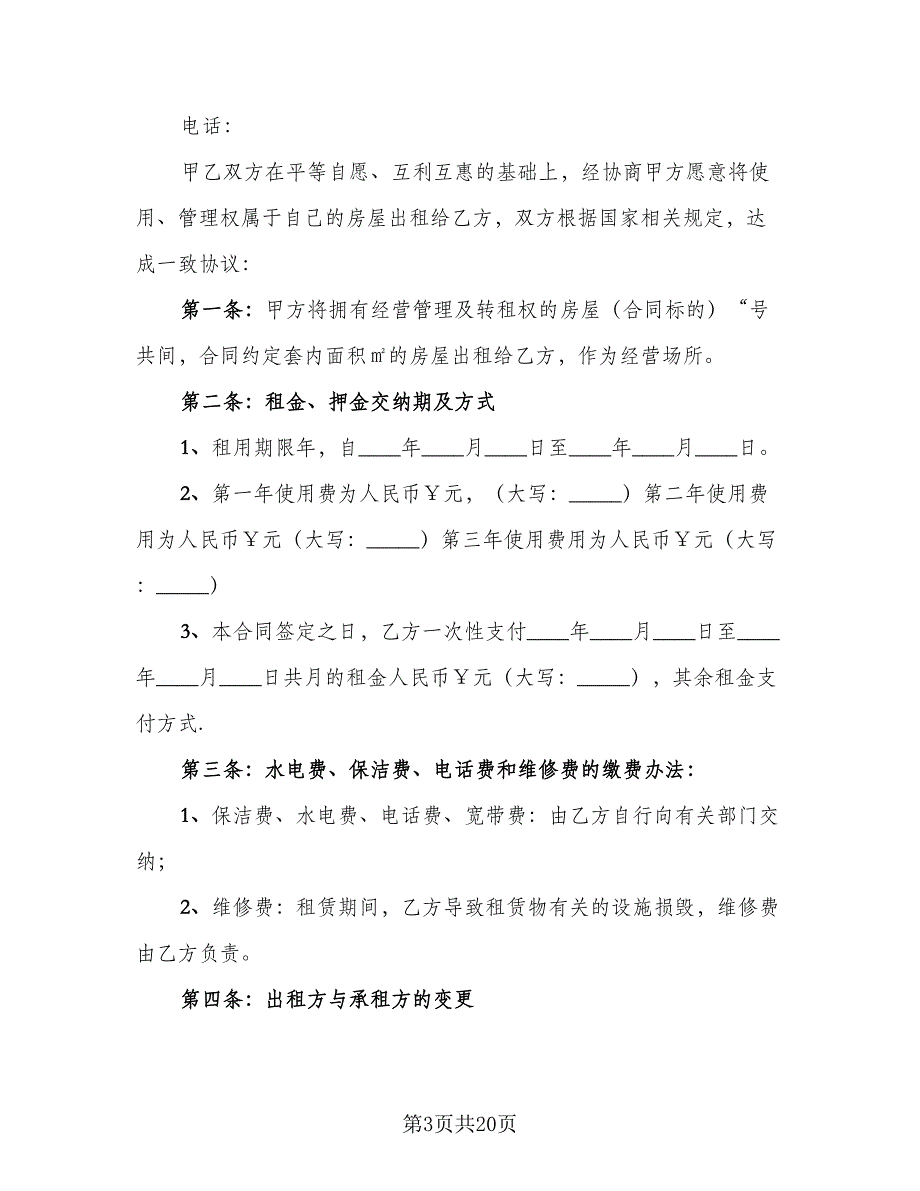 电话：
甲乙双方在平等自愿、互利互惠的基础上，经协商甲方愿意将使
用、管理权属于自己的房屋出租给乙方，双方根据国家相关规定，达
成一致协议：
第一条：甲方将拥有经营管理及转租权的房屋（合同标的）“号
共间，合同约定套内面积㎡的房屋出租给乙方，作为经营场所。
第二条：租金、押金交纳期及方式
1、租用期限年，自____年____月____日至____年____月____日。
2、第一年使用费为人民币￥元，（大写：_____）第二年使用费
用为人民币￥元（大写：_____）第三年使用费用为人民币￥元（大写
：_____）
3、本合同签定之日，乙方一次性支付____年____月____日至____
年____月____日共月的租金人民币￥元（大写：_____），其余租金支
付方式.
第三条：水电费、保洁费、电话费和维修费的缴费办法：
1、保洁费、水电费、电话费、宽带费：由乙方自行向有关部门交
纳；
2、维修费：租赁期间，乙方导致租赁物有关的设施损毁，维修费
由乙方负责。
第四条：出租方与承租方的变更
第3页共20页